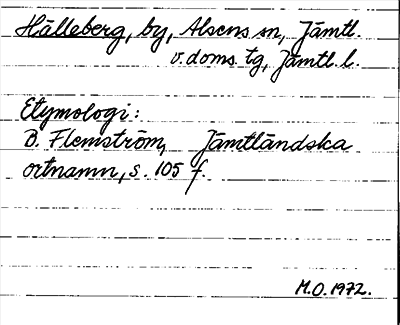 Hälleberg, by, Alsens sn, Jämtl.
v. doms. tg, Jämtl. l.
Etymologi:
B. Flemström, Jämtländska
ortnamn, s. 105 f.
M.O. 1972.